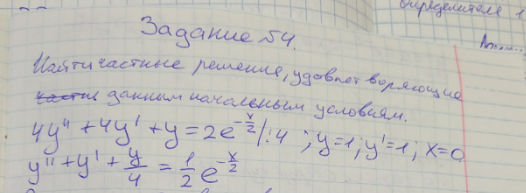 определителе 1
Задание №4.
Найти частные решение, удовлетворяющие
данным начальным условиям.
4y'' + 4y' + y = 2e^{-x/2} |:4 ; y=1; y'=1; x=0
y'' + y' + y/4 = 1/2 e^{-x/2}